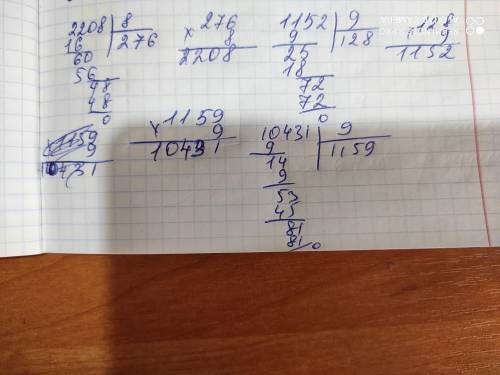 2208 | 8
16 276
60
56
48
48
0
× 276
8
2208
1152 | 9
9 128
25
18
72
72
0
128
1152
1159
9
10431
× 1159
9
10431
10431 | 9
9 1159
14
9
53
45
81
81
0